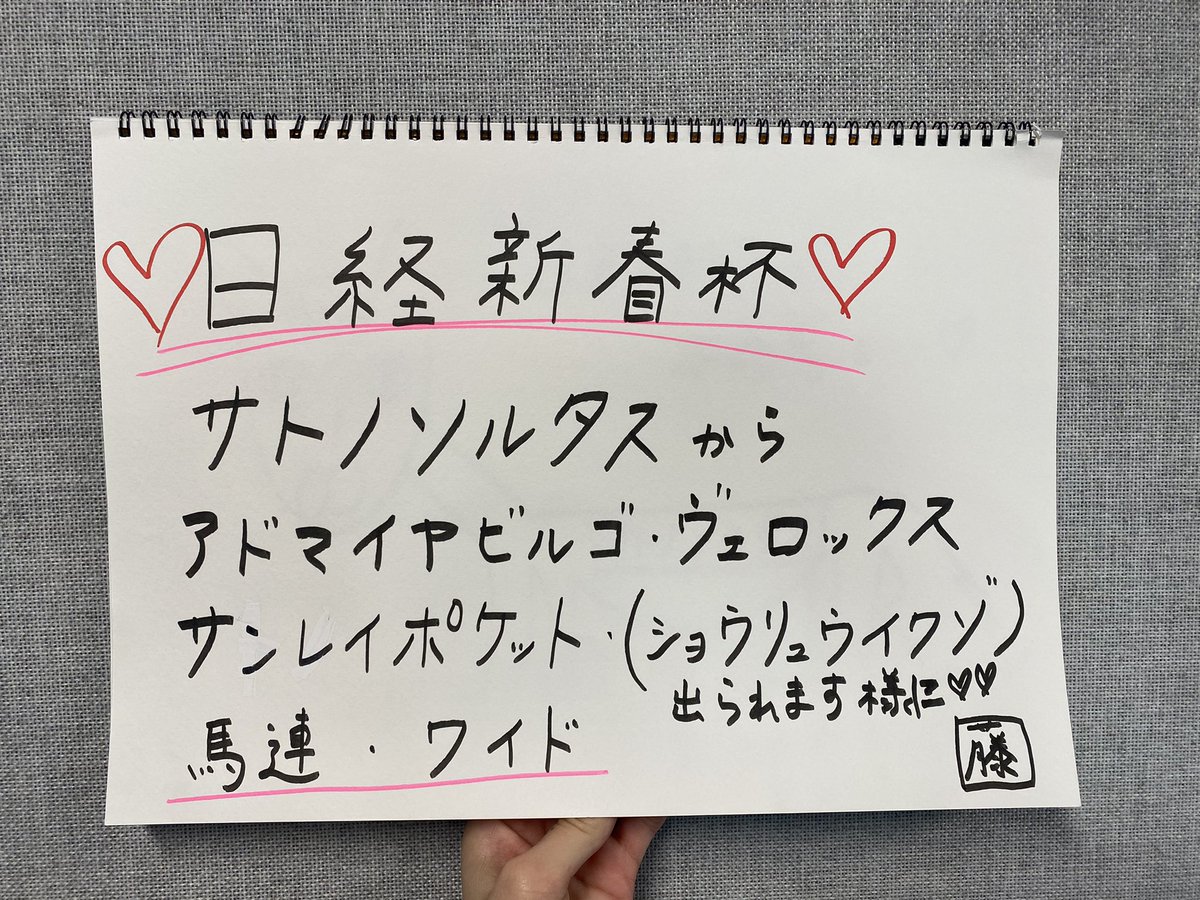 ♡日経新春杯♡
サトノソルタスから
アドマイヤビルゴ・ヴェロックス
サンレイポケット・(ショウリュウイクゾ)
出られます様に♡♡
馬連・ワイド
藤